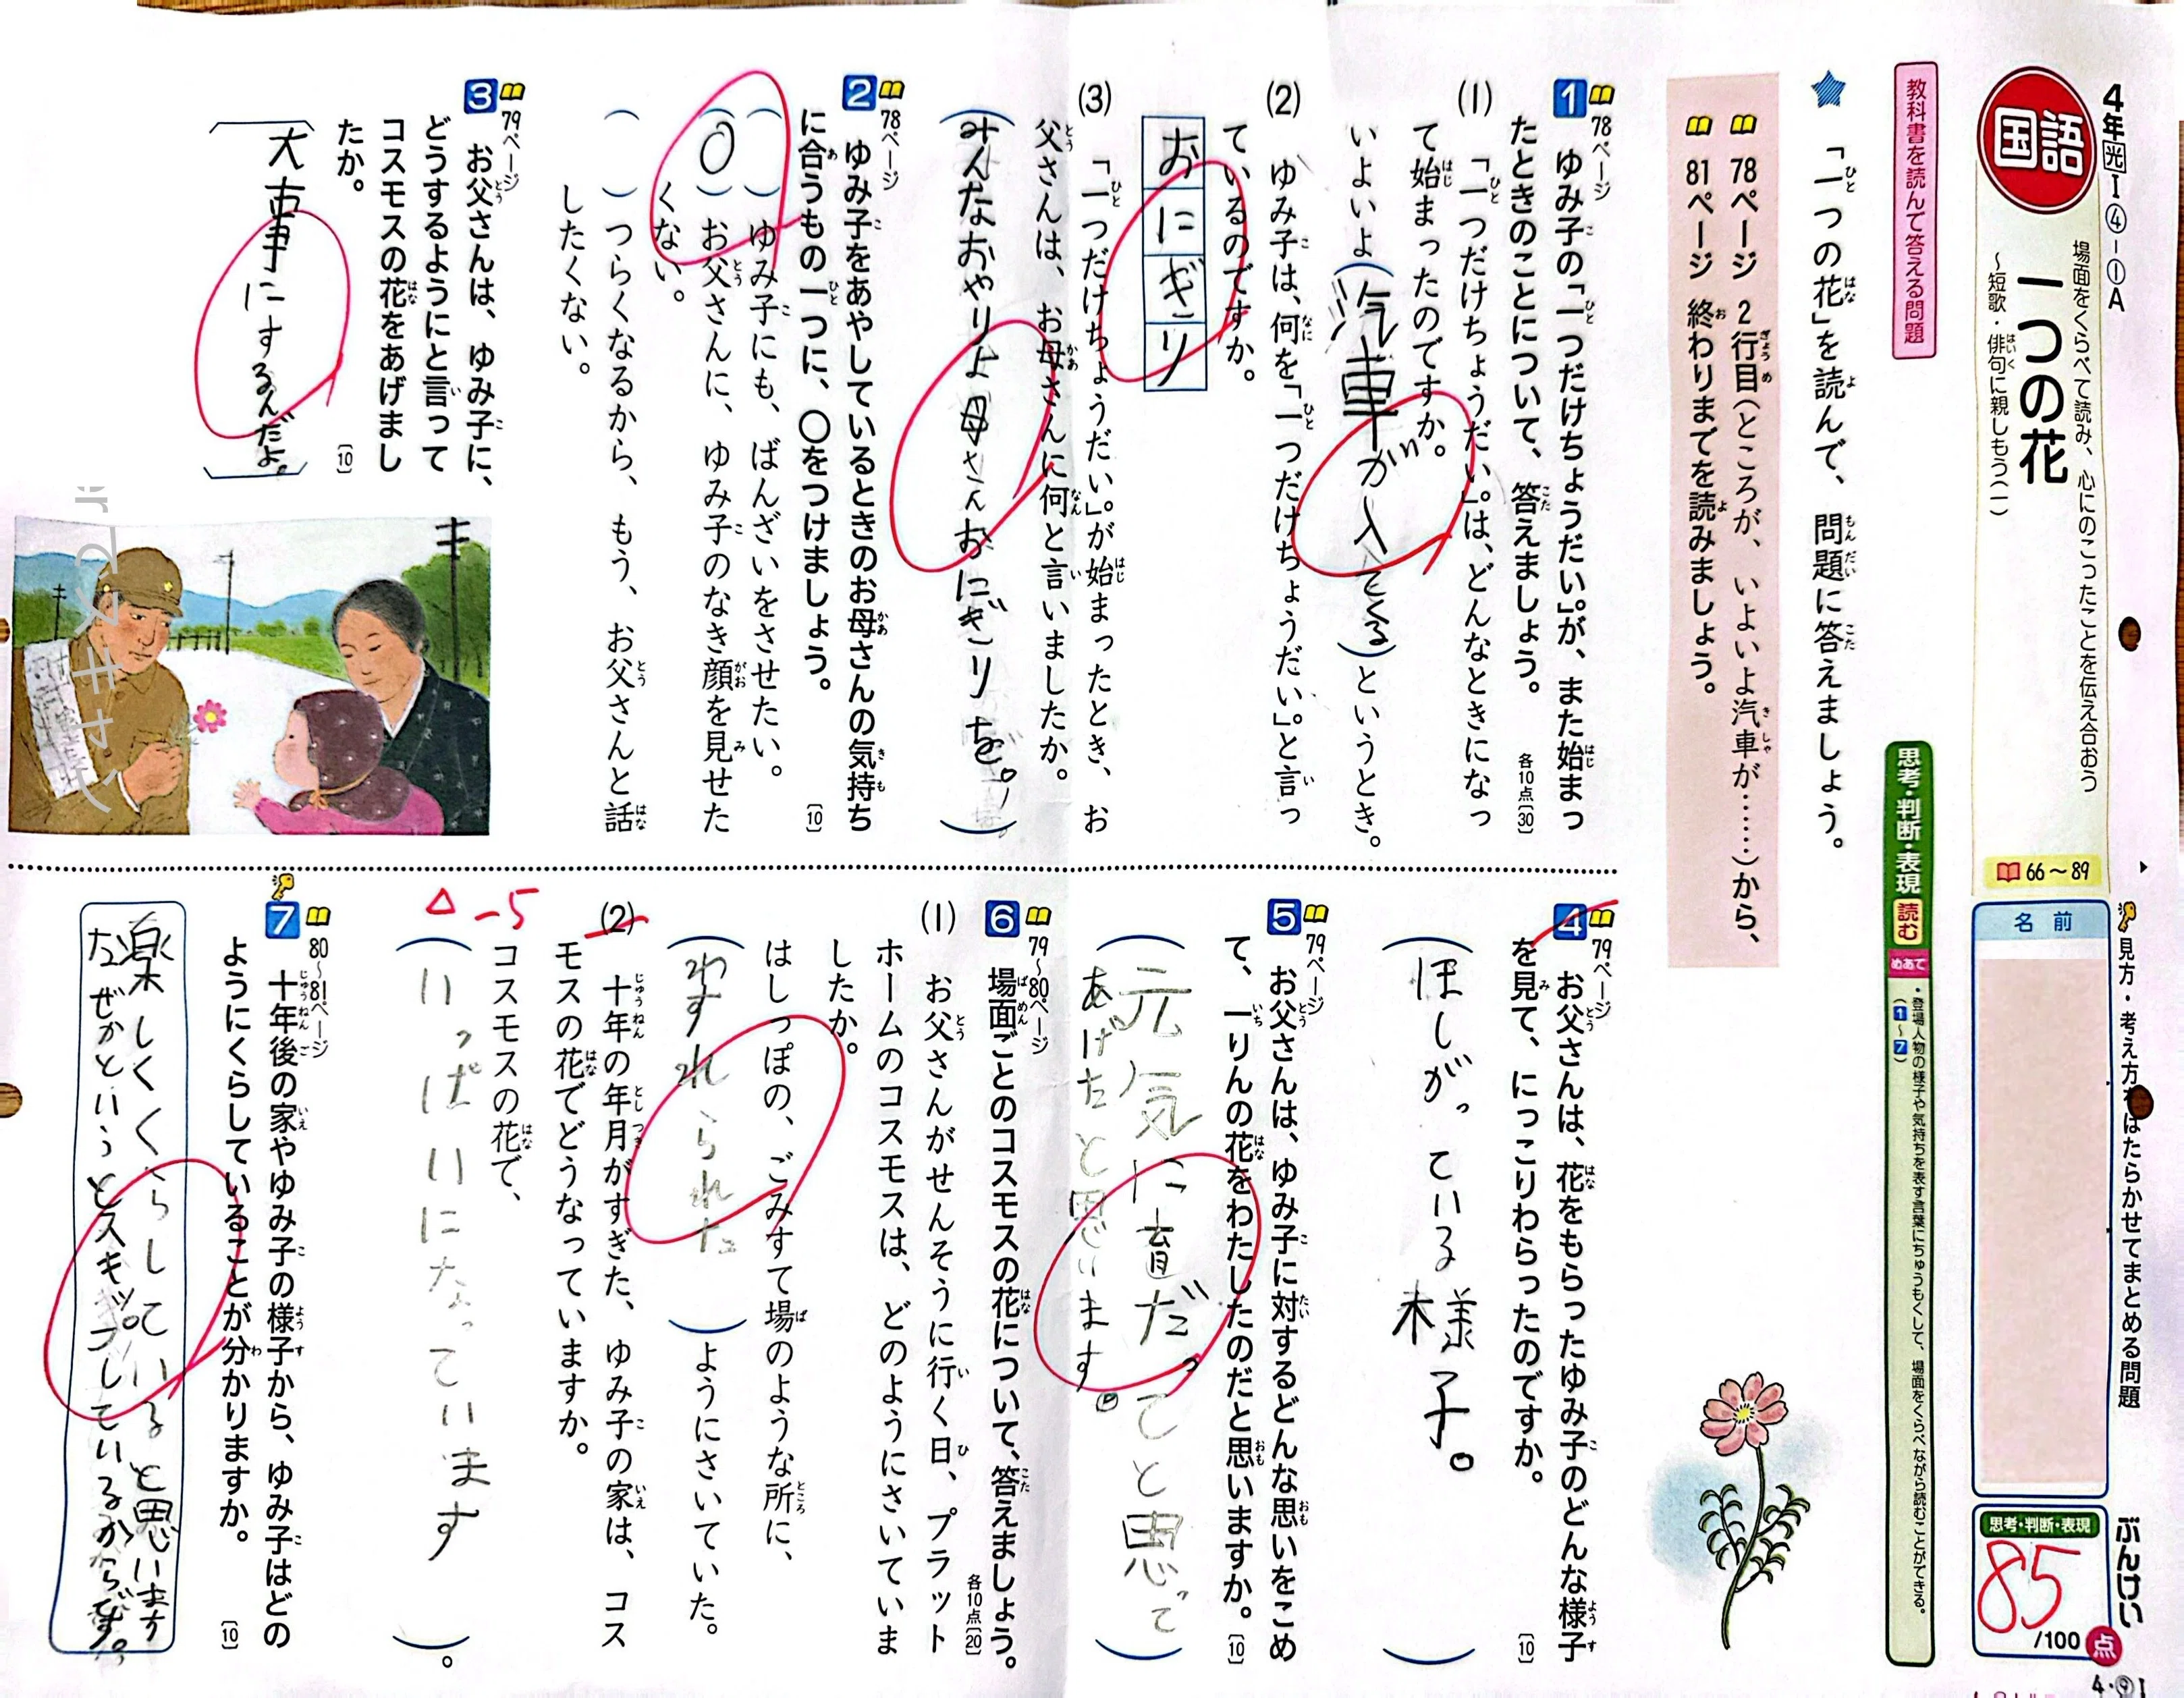 4年光Ⅰ④-①A
国語
場面をくらべて読み、心にのこったことを伝え合おう
一つの花
~短歌・俳句に親しもう(一)
66~89
教科書を読んで答える問題
思考・判断・表現 読む めあて
・登場人物の様子や気持ちを表す言葉にちゅうもくして、場面をくらべながら読むことができる。
(1~7)
見方・考え方をはたらかせてまとめる問題
名前
ぶんけい
思考・判断・表現
85
/100
点
★「一つの花」を読んで、問題に答えましょう。
78ページ 2行目(ところが、いよいよ汽車が……)から、
81ページ 終わりまでを読みましょう。
1 78ページ
ゆみ子の「一つだけちょうだい。」が、また始まっ
たときのことについて、答えましょう。
各10点〔30〕
(1) 「一つだけちょうだい。」は、どんなときになっ
て始まったのですか。
いよいよ(汽車が入てる)というとき。
(2) ゆみ子は、何を「一つだけちょうだい。」と言っ
ているのですか。
おにぎり
(3) 「一つだけちょうだい。」が始まったとき、お
父さんは、お母さんに何と言いましたか。
(みんなおやりよ母さんおにぎりを。)
2 78ページ
ゆみ子をあやしているときのお母さんの気持ち
に合うもの一つに、〇をつけましょう。
〔10〕
( )ゆみ子にも、ばんざいをさせたい。
(〇)お父さんに、ゆみ子のなき顔を見せた
くない。
( )つらくなるから、もう、お父さんと話
したくない。
3 79ページ
お父さんは、ゆみ子に、
どうするようにと言って
コスモスの花をあげまし
たか。
〔10〕
大事にするんだよ。
4 79ページ
お父さんは、花をもらったゆみ子のどんな様子
を見て、にっこりわらったのですか。
〔10〕
(ほしがっている様子。)
5 79ページ
お父さんは、ゆみ子に対するどんな思いをこめ
て、一りんの花をわたしたのだと思いますか。
〔10〕
(元気に育だってと思って
あげたと思います。)
6 79~80ページ
場面ごとのコスモスの花について、答えましょう。
各10点〔20〕
(1) お父さんがせんそうに行く日、プラット
ホームのコスモスは、どのようにさいていま
したか。
はしっぽの、ごみすて場のような所に、
(わすれられた)ようにさいていた。
(2) 十年の年月がすぎた、ゆみ子の家は、コス
モスの花でどうなっていますか。
コスモスの花で、
△ -5
(いっぱいになっています)。
7 80~81ページ
十年後の家やゆみ子の様子から、ゆみ子はどの
ようにくらしていることが分かりますか。
〔10〕
楽しくくらしていると思います
なぜかというとスキップしているからです。